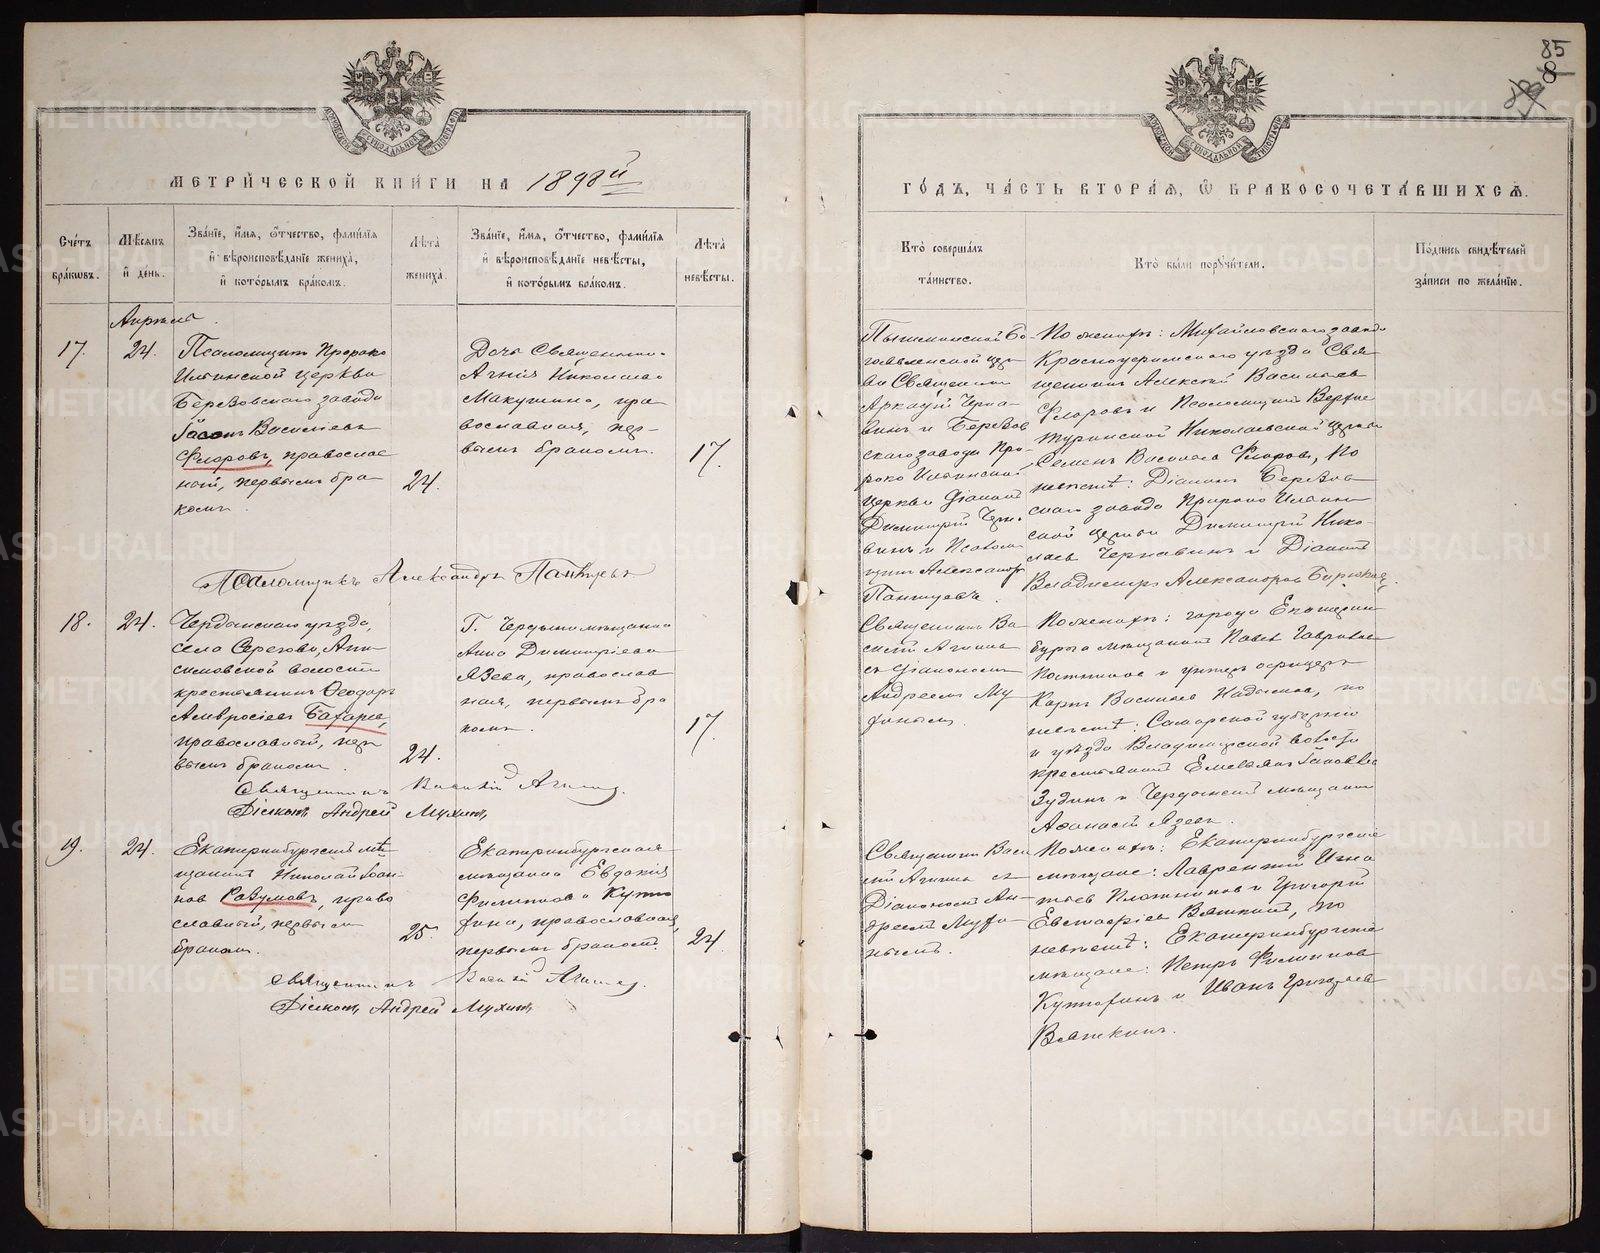 85
8
МЕТРИ́ЧЕСКОЙ КНИ́ГИ НА 1898й
ГО́ДЪ, ЧА́СТЬ ВТОРА́Ѧ, Ѡ БРАКОСОЧЕТА́ВШИХСѦ.
Сче́тъ бра́кѡвъ.
Мѣ́сѧцъ и҆ де́нь.
Зва́нїе, и҆́мѧ, ѻ҆́тчество, фами́лїѧ и҆ вѣроисповѣ́данїе жениха̀, и҆ кото́рымъ бра́комъ.
Лѣ́та̀ жениха̀.
Зва́нїе, и҆́мѧ, ѻ҆́тчество, фами́лїѧ и҆ вѣроисповѣ́данїе невѣ́сты, и҆ кото́рымъ бра́комъ.
Лѣ́та̀ невѣ́сты.
Кто̀ соверша́лъ та́инство.
Кто̀ бы́ли порꙋчи́тели.
По́дпись свидѣ́телей за́писи по жела́нїю.
Апрѣля
17.
24.
Псаломщикъ Пророко
Ильинской церкви
Березовскаго завода
Іасонъ Василіевъ
Флоровъ, православ
ный, первымъ бра-
комъ.
24.
Дочь Священника
Агнія Николаева
Макушина, пра
вославная, пер-
вымъ бракомъ.
17.
Пышминской Бо-
гоявленской церк
ви Священникъ
Аркадій Черна-
винъ и Березов
скаго завода Про-
роко Ильинской
церкви Діаконъ
Димитрій Черна
винъ и Псалом
щикъ Александръ
Пантуевъ.
По женихѣ: Михайловскаго завода
Красноуфимскаго уѣзда Свя
щенникъ Алексій Васильевъ
Флоровъ и Псаломщикъ Верхне
туринской Николаевской церкви
Семенъ Васильевъ Флоровъ, по
невѣстѣ: Діаконъ Березов
скаго завода Пророко Ильин
ской церкви Димитрій Нико-
лаевъ Чернавинъ и Діаконъ
Владимиръ Александровъ Бирюковъ.
Псаломщикъ Александръ Пантуевъ
18.
24.
Чердынскаго уѣзда,
села Серегова, Ани
симовской волости
крестьянинъ Ѳеодоръ
Амвросіевъ Бахаревъ,
православный, пер
вымъ бракомъ.
24.
Г. Чердыни мѣщанка
Анна Димитріева
Язева, православ
ная, первымъ бра
комъ.
17.
Священникъ Ва
силій Агинъ
съ Діакономъ
Андреемъ Му
хинымъ.
По женихѣ: города Екатерин
бурга мѣщанинъ Павелъ Гавриловъ
офицеръ
Карпъ Васильевъ по
невѣстѣ: Самарской губерніи
и уѣзда Владимирской волости
крестьянинъ Емельянъ Іаковлевъ
Зудинъ и Чердынскій мѣщанинъ
Аѳанасій Язевъ.
Священникъ Василій
Діаконъ Андрей Мухинъ
19.
24.
Екатеринбургскій мѣ
щанинъ Николай Іоан-
новъ Разумовъ, право
славный, первымъ
бракомъ.
25.
Екатеринбургская
мѣщанка Евдокія
Филиппова Кутю
хина, православная,
первымъ бракомъ.
24.
Священникъ Васи
лій Агинъ съ
Діакономъ Ан-
дреемъ Мухи-
нымъ.
По женихѣ: Екатеринбургскіе
мѣщане: Лаврентій Игна
тьевъ Плотниковъ и Григорій
Евстафіевъ Вяткинъ, по
невѣстѣ: Екатеринбургскіе
мѣщане: Петръ Филипповъ
Кутюхинъ и Иванъ Григорьевъ
Вяткинъ.
Священникъ Василій
Діаконъ Андрей Мухинъ
METRIKI.GASO-URAL.RU